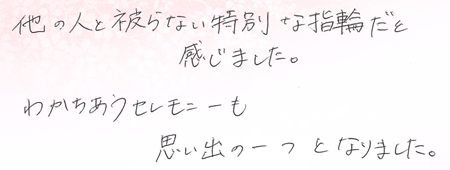 他の人と被らない特別な指輪だと
感じました。
わかちあうセレモニーも
思い出の一つとなりました。